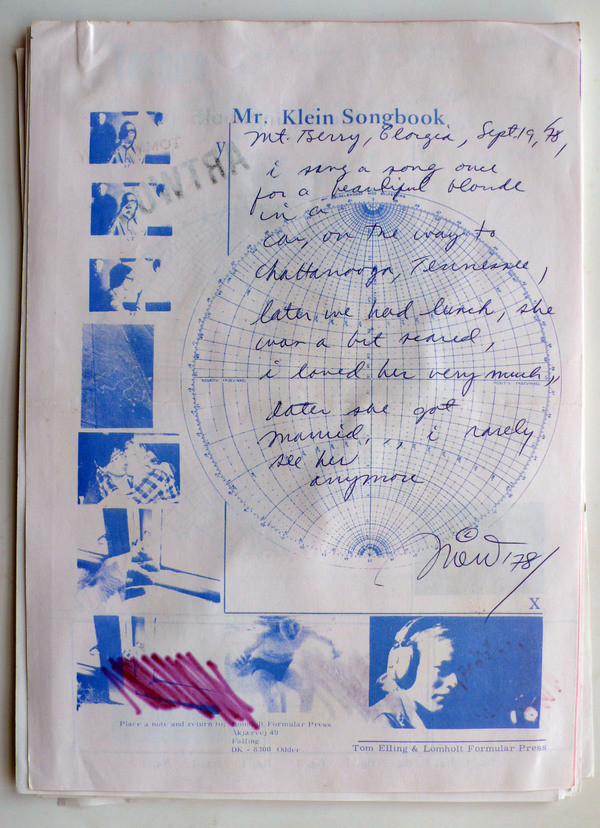 Mr. Klein Songbook
Mt. Berry, Georgia, Sept. 19, 78,
y
i sang a song once
for a beautiful blonde
in a
car, on the way to
Chattanooga, Tennessee,
later we had lunch, she
was a bit scared,
i loved her very much,,
later she got
married,,, i rarely
see her
anymore
©
178/
X
Place a note and return to: Lomholt Formular Press
Åkjærvej 49
Falling
DK - 8300 Odder
Tom Elling & Lomholt Formular Press